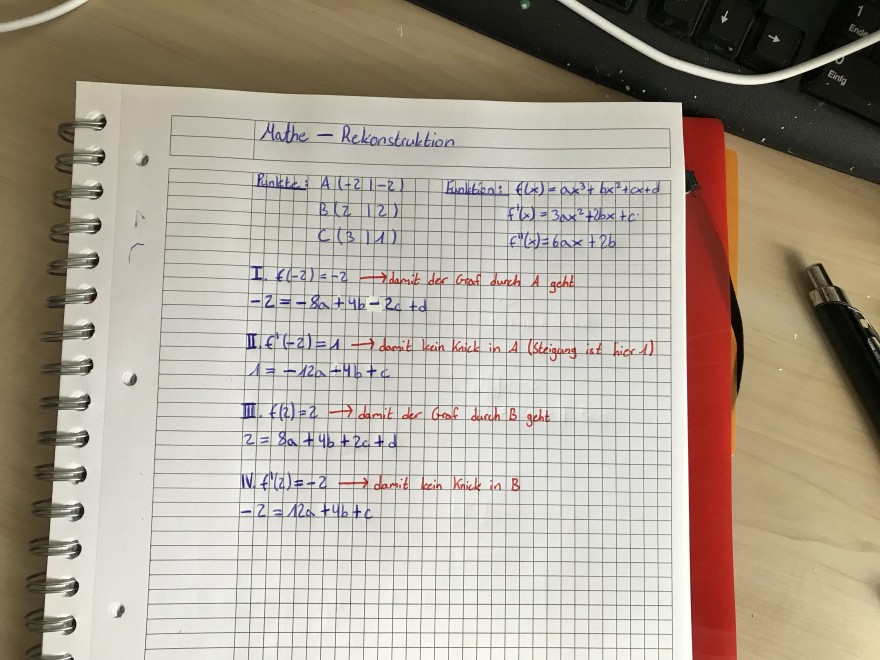 Mathe – Rekonstruktion
Punkte: A (-2 | -2) Funktion: f(x) = ax³ + bx² + cx + d
B (2 | 2) f'(x) = 3ax² + 2bx + c
C (3 | 1) f''(x) = 6ax + 2b
I. f(-2) = -2 → damit der Graf durch A geht
-2 = -8a + 4b - 2c + d
II. f'(-2) = 1 → damit kein Knick in A (Steigung ist hier 1)
1 = -12a + 4b + c
III. f(2) = 2 → damit der Graf durch B geht
2 = 8a + 4b + 2c + d
IV. f'(2) = -2 → damit kein Knick in B
-2 = 12a + 4b + c
↓
→
1
Ende
0
Einfg